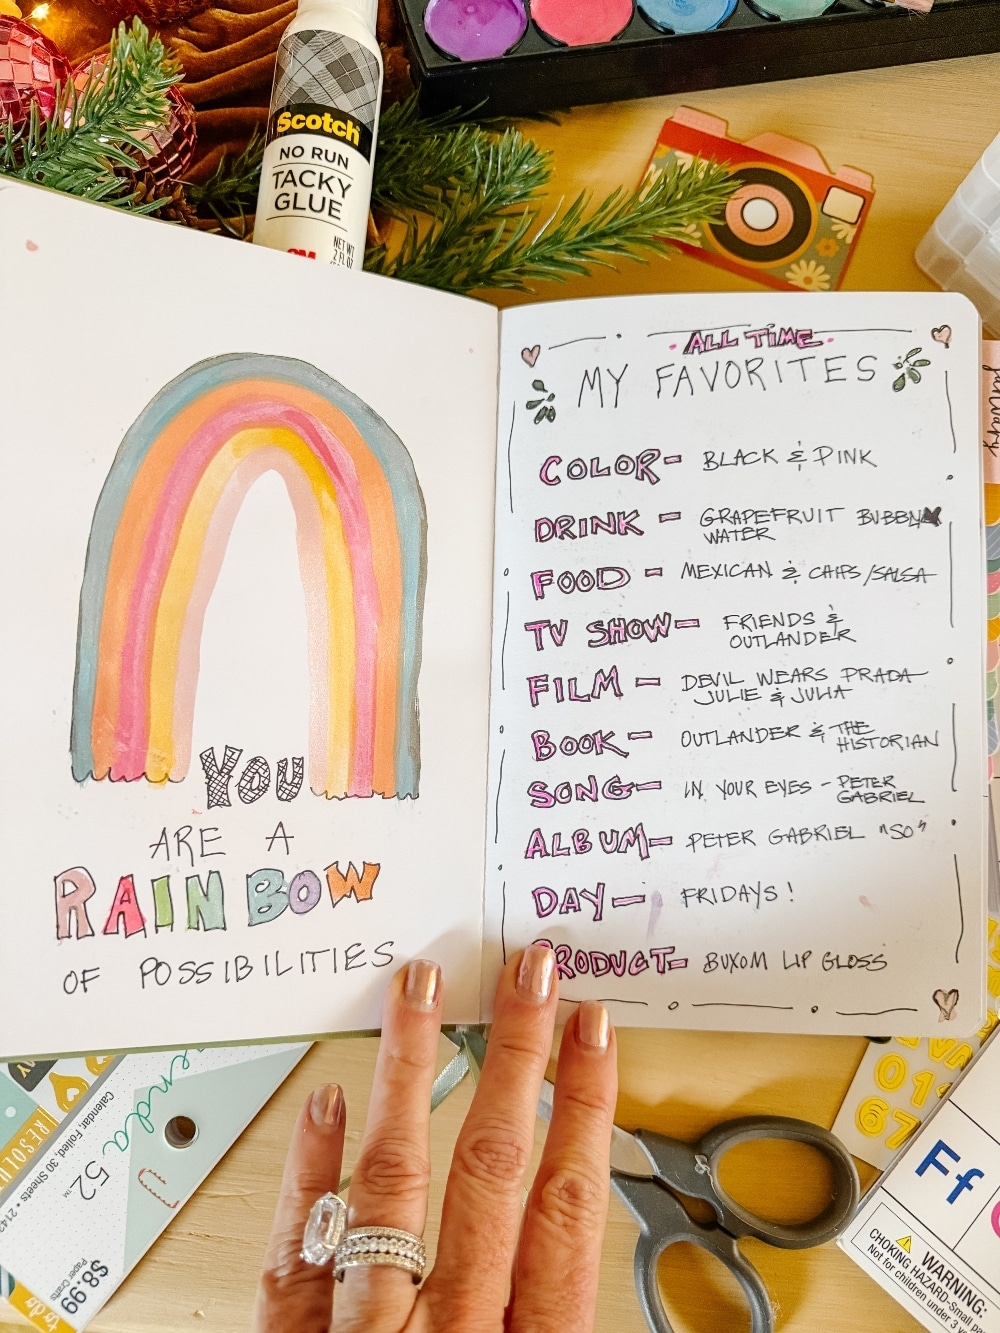 Scotch
NO RUN
TACKY
GLUE
3M
NET WT
2 FL OZ
YOU
ARE A
RAINBOW
OF POSSIBILITIES
ALL TIME
MY FAVORITES
COLOR- BLACK & PINK
DRINK - GRAPEFRUIT BUBBLY
WATER
FOOD - MEXICAN & CHIPS/SALSA
TV SHOW- FRIENDS &
OUTLANDER
FILM - DEVIL WEARS PRADA
JULIE & JULIA
BOOK- OUTLANDER & THE
HISTORIAN
SONG- IN YOUR EYES - PETER
GABRIEL
ALBUM- PETER GABRIEL "SO"
DAY- FRIDAYS!
PRODUCT- BUXOM LIP GLOSS
January
enda 52™
Calendar, Foiled, 30 Sheets •
RESOLU
$8.99
Paper Crafts
to do
019
67
Ff
WARNING:
CHOKING HAZARD-Small pa
Not for children under 3 y